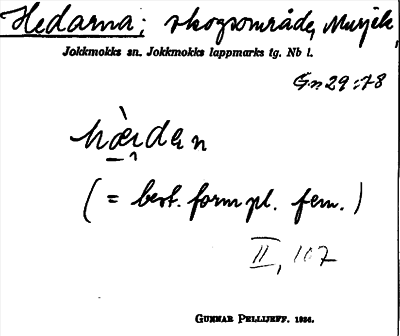 Hedarna; skogsområde, Murjek,
Jokkmokks sn. Jokkmokks lappmarks tg. Nb l.
Gn 29:78
hæ̀i̯dan
(= best. form pl. fem.)
II, 107
GUNNAR PELLIJEFF. 1936.